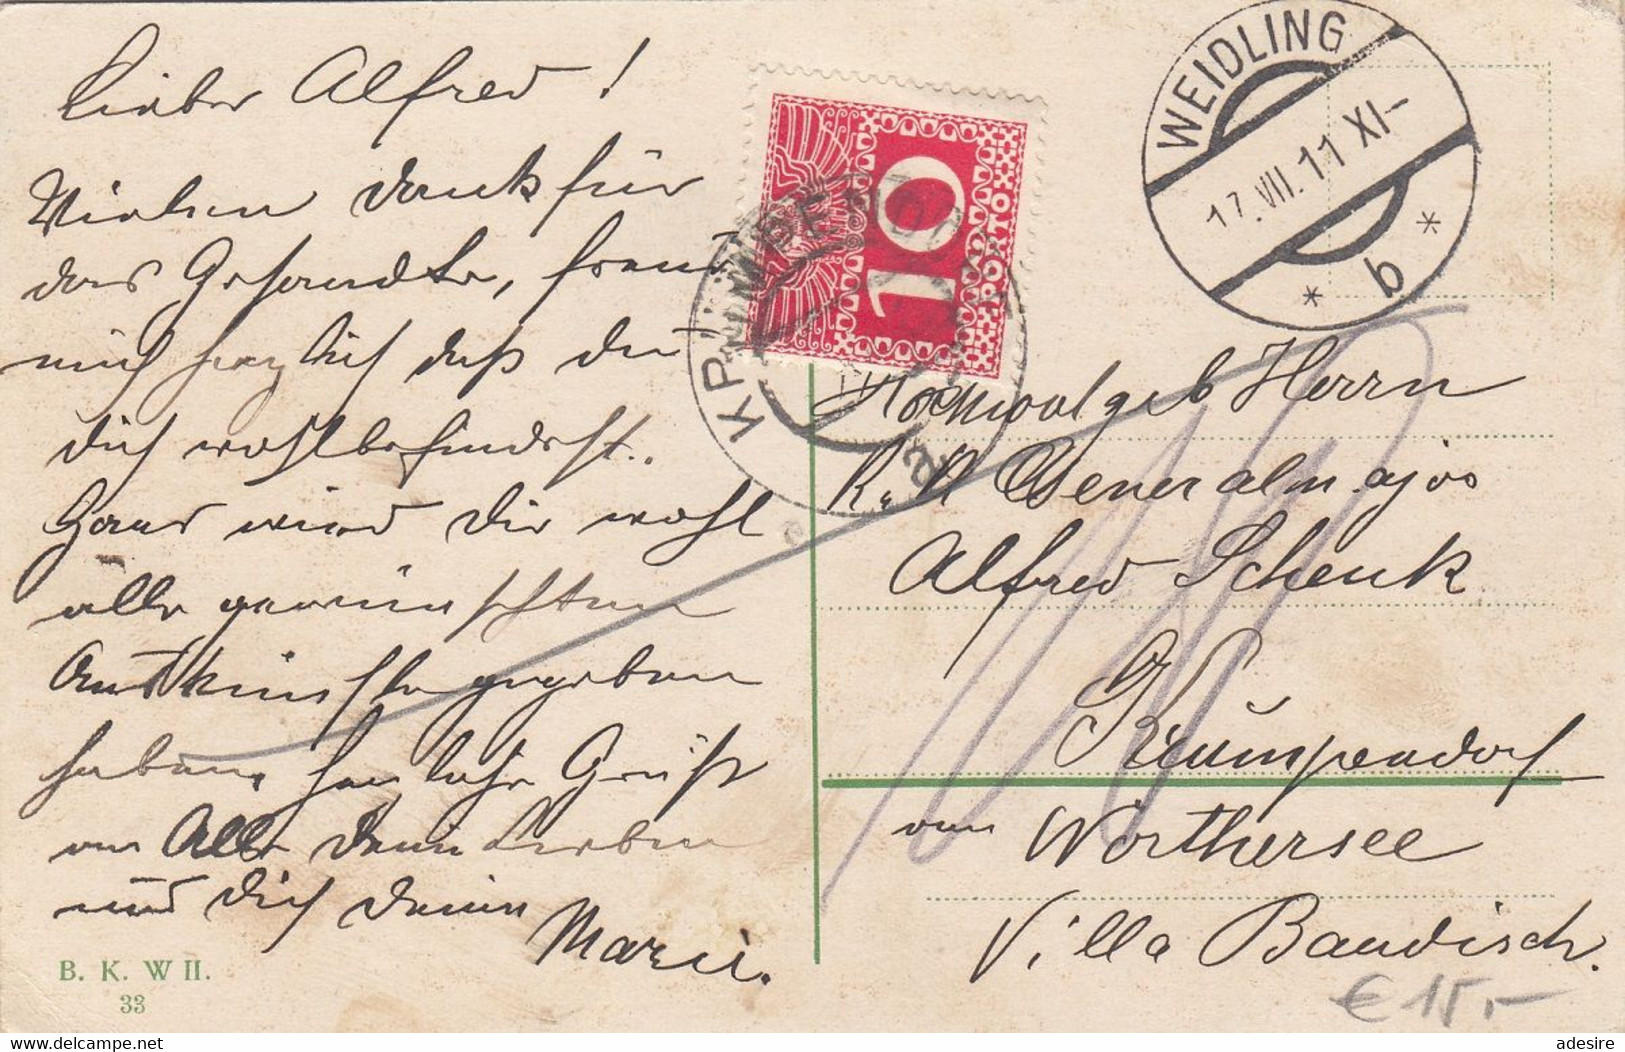 Lieber Alfred!
Vielen Dank für
das Gesandte, freut
mich herzlich daß du
dich wohlbefindest.
Hans wird Dir wohl
alle gewünschten
Auskünfte gegeben
haben, herzlichste Grüße
an Alle Deine Lieben
und Dich Deine
Marie.
B. K. W II.
33
10
PORTO
WEIDLING
17. VII. 11 XI–
* b *
KRUMPENDORF
a
Hochwolgeb Herrn
K. u. K Generalmajor
Alfred Schenk
Krumpendorf
am Wörthersee
Villa Baudisch.
10
€ 15,-
delcampe.net
adesire